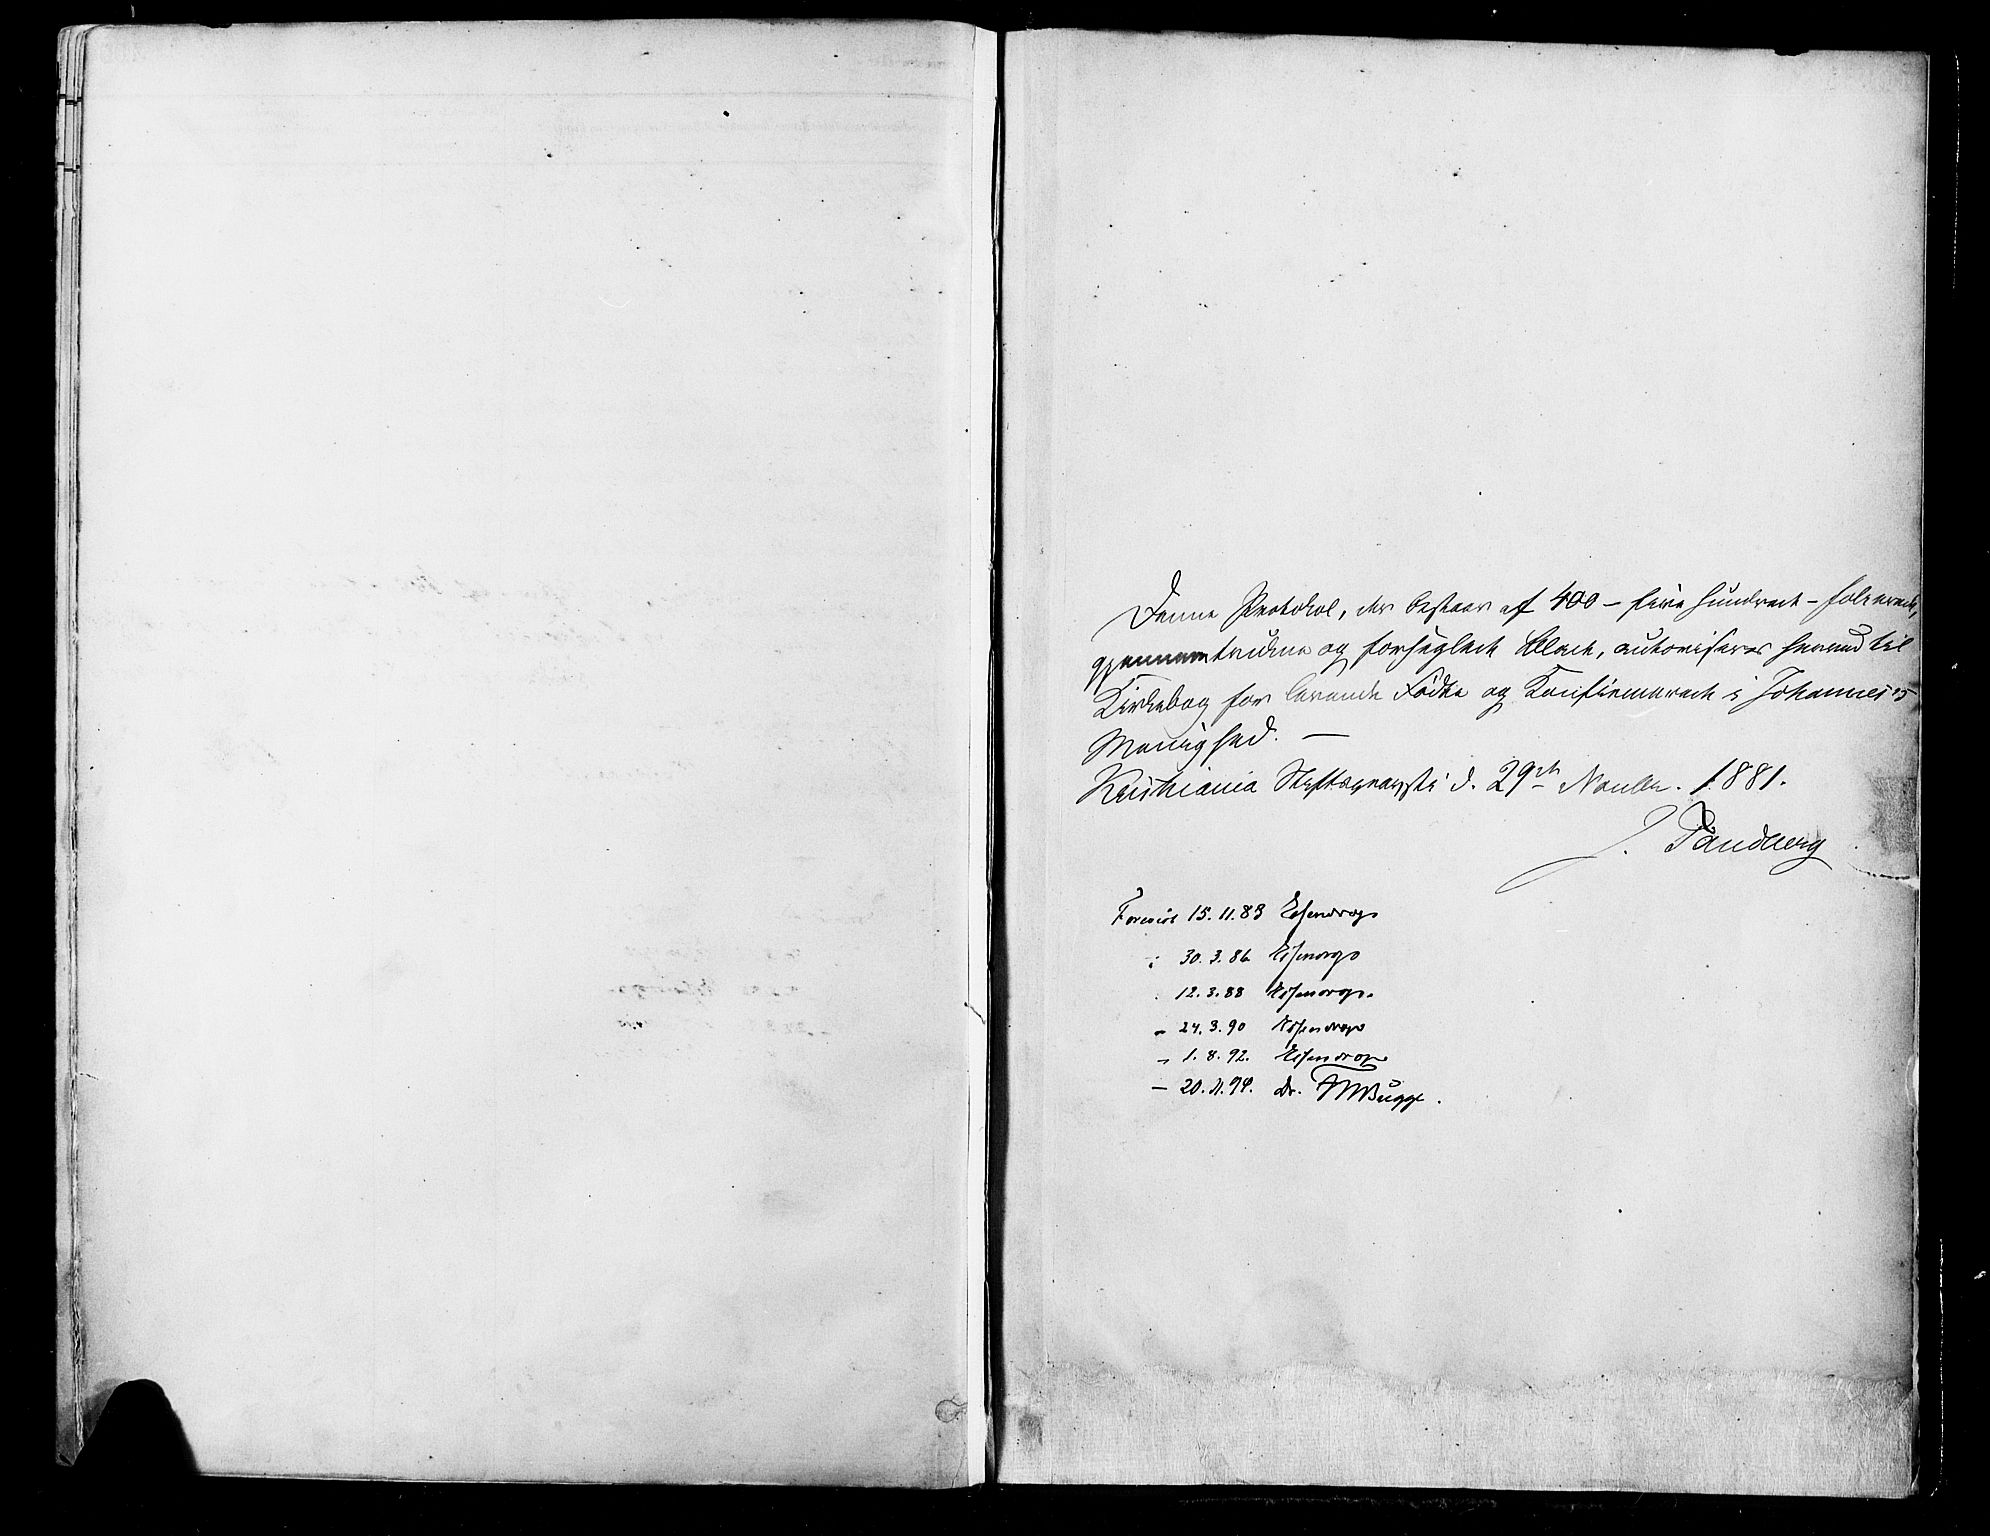 Denne Protokol, der bestaar af 400 – fire hundrede – folierede,
gjennemtrukne og forseglede Blade, autoriseres herved til
Kirkebog for levende Fødte og Konfirmerede i Johannes's
Menighed. —
Kristiania Stiftsprovsti d. 29de Novbr. 1881.
J. Sandberg
Forevist 15.11.83 Essendrop
" 30.3.86 Essendrop
" 12.3.88 Essendrop.
" 24.3.90 Essendrop
" 1.8.92. Essendrop
— 20.11.94. Dr. FWBugge.